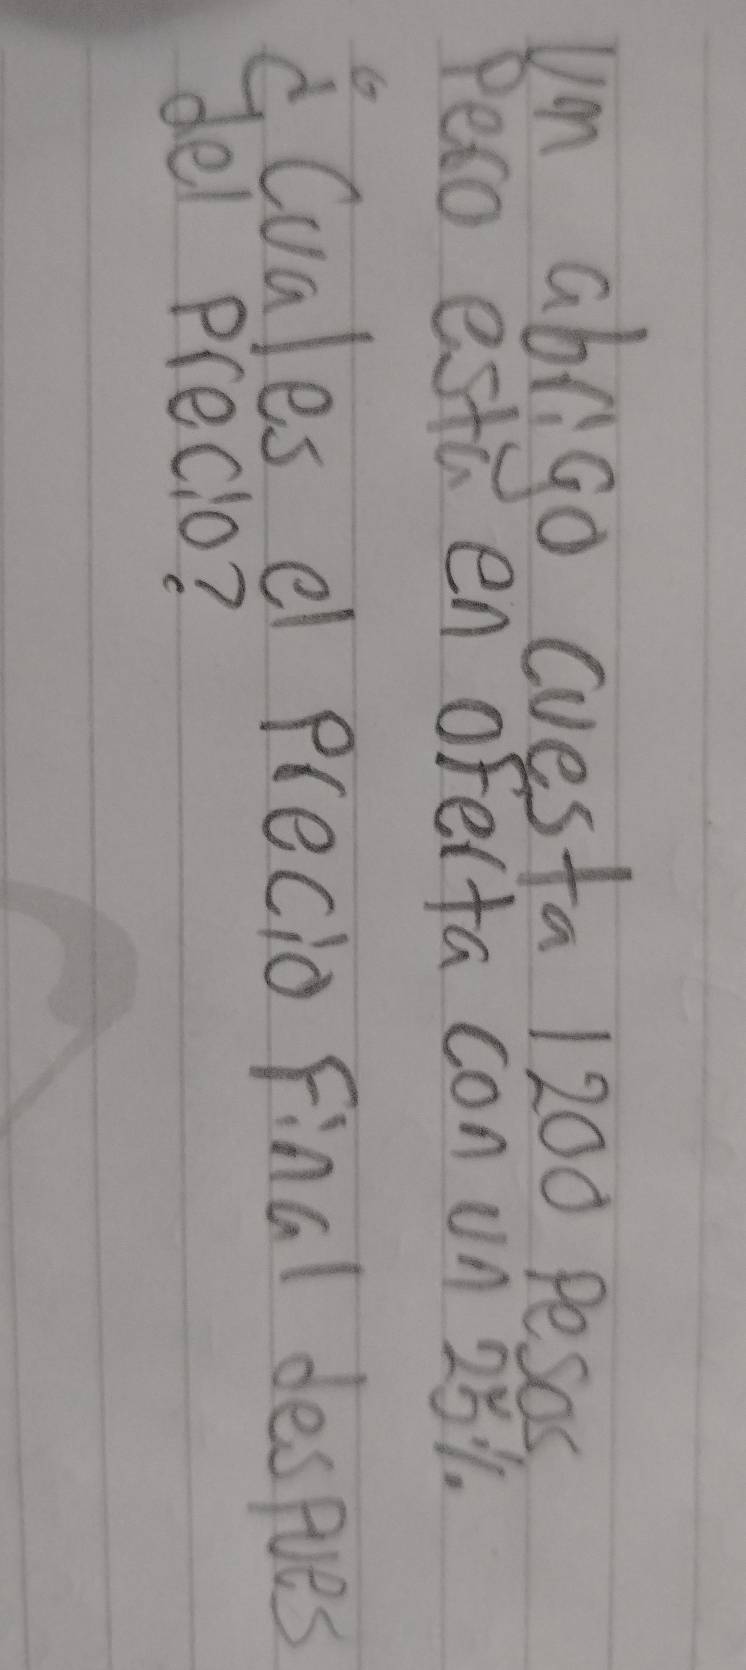 Un abrigo cuesta 1200 pesos
Pero está en oferta con un 25%.
¿Cual es el Precio final despues
del Precio?